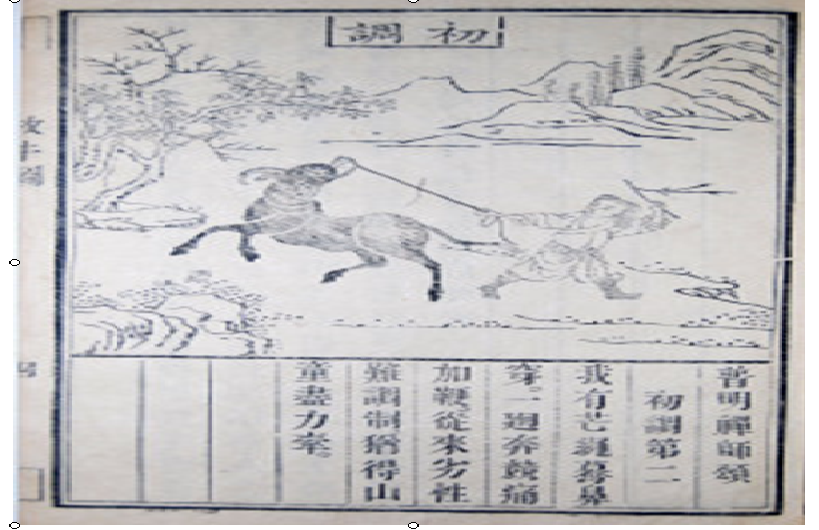 初調
普明禪師頌
初調第二
我有芒繩驀鼻
穿一迴奔競痛
加鞭從來劣性
難調制猶得山
童盡力牽
牧牛圖